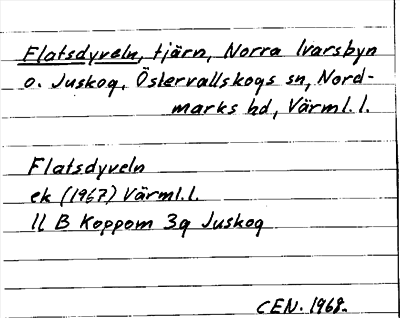 Flatsdyveln, tjärn, Norra Ivarsbyn
o. Juskog, Östervallskogs sn, Nord-
marks hd, Värml.l.
Flatsdyveln
ek (1967) Värml.l.
11 B Koppom 3g Juskog
CEN. 1968.